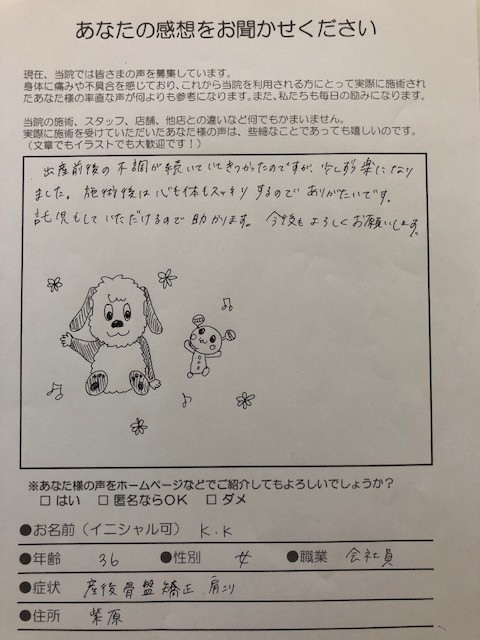 あなたの感想をお聞かせください
現在、当院では皆さまの声を募集しています。
身体に痛みや不具合を感じており、これから当院を利用される方にとって実際に施術され
たあなた様の率直な声が何よりも参考になります。また、私たちも毎日の励みになります。
当院の施術、スタッフ、店舗、他店との違いなど何でもかまいません。
実際に施術を受けていただいたあなた様の声は、些細なことであっても嬉しいのです。
(文章でもイラストでも大歓迎です!)
出産前後の不調が続いていてきつかったのですが、少しずつ楽になり
ました。施術後は心も体もスッキリするのでありがたいです。
託児もしていただけるので助かります。今後もよろしくお願いします。
※あなた様の声をホームページなどでご紹介してもよろしいでしょうか?
□ はい □ 匿名ならOK □ ダメ
●お名前(イニシャル可) K.K
●年齢 36 ●性別 女 ●職業 会社員
●症状 産後骨盤矯正、肩こり
●住所 柴原